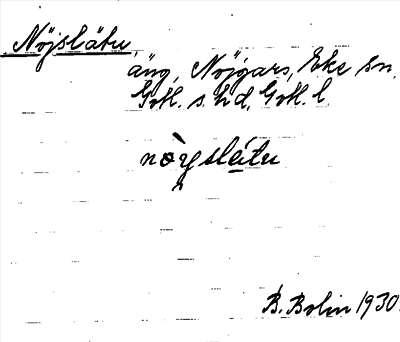 Nöjslätu,
äng, Nöjgars, Eke sn.
Gotl. s. hd, Gotl. l.
nòyslátu
B. Bolin 1930.